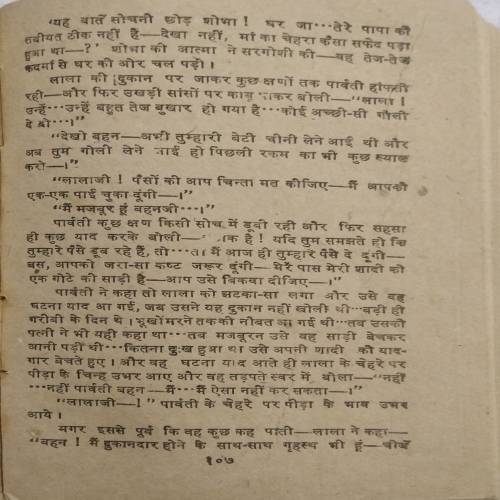 "यह बातें सोचनी छोड़ शोभा ! घर जा···तेरे पापा की
तबीयत ठीक नहीं है—देखा नहीं, मां का चेहरा कैसा सफेद पड़ा
हुआ था—?' शोभा की आत्मा ने सरगोशी की—वह तेज-तेज
कदमों से घर की ओर चल पड़ी।।
लाला की दुकान पर जाकर कुछ क्षणों तक पार्वती हांफती
रही—और फिर उखड़ी सांसों पर काबू पाकर बोली—"लाला !
उन्हें···उन्हें बहुत तेज बुखार हो गया है···कोई अच्छी-सी गोली
दे दो···।"
"देखो बहन—अभी तुम्हारी बेटी चीनी लेने आई थी और
अब तुम गोली लेने आई हो पिछली रकम का भी कुछ ख्याल
करो—।"
"लालाजी ! पैसों की आप चिन्ता मत कीजिए—मैं आपकी
एक-एक पाई चुका दूंगी—।"
"मैं मजबूर हूं बहनजी···।"
पार्वती कुछ क्षण किसी सोच में डूबी रही और फिर सहसा
ही कुछ याद करके बोली— है ! यदि तुम समझते हो कि
तुम्हारे पैसे डूब रहे हैं, तो··· मैं आज ही तुम्हारे पैसे दे दूंगी—
बस, आपको जरा-सा कष्ट जरूर दूंगी— मेरे पास मेरी शादी की
एक गोटे की साड़ी है—आप उसे बिकवा दीजिए—।"
पार्वती ने कहा तो लाला को झटका-सा लगा और उसे वह
घटना याद आ गई, जब उसने यह दुकान नहीं खोली थी···बड़ी ही
गरीबी के दिन थे। भूखों मरने तक की नौबत आ गई थी···तब उसकी
पत्नी ने भी यही कहा था···तब मजबूरन उसे वह साड़ी बेचकर
आनी पड़ी थी···कितना दुःख हुआ था उसे अपनी शादी की याद-
गार बेचते हुए। और वह घटना याद आते ही लाला के चेहरे पर
पीड़ा के चिन्ह उभर आए और वह तड़पते स्वर में बोला—"नहीं
···नहीं पार्वती बहन—मैं···मैं ऐसा नहीं कर सकता—।"
"लालाजी—!" पार्वती के चेहरे पर पीड़ा के भाव उभर
आये।
मगर इससे पूर्व कि वह कुछ कह पाती—लाला ने कहा—
"बहन ! मैं दुकानदार होने के साथ-साथ गृहस्थ भी हूं—चीजें
१०७